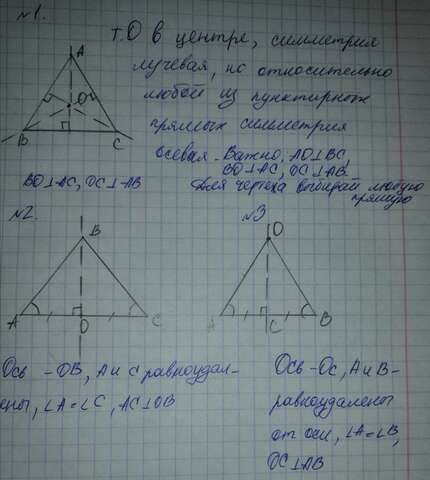 №1.
т.О в центре, симметрия
лучевая, но относительно
любой из пунктирных
прямых симметрия
осевая. Важно, AO⊥BC,
BO⊥AC, OC⊥AB.
Для чертежа выбирай любую
прямую
A
O
B
C
BO⊥AC, OC⊥AB
№2.
B
A
O
C
Ось - OB, A и C равноудал-
ены, ∠A=∠C, AC⊥OB
№3
O
A
C
B
Ось - Oc, A и B -
равноудалены
от оси, ∠A=∠B,
OC⊥AB